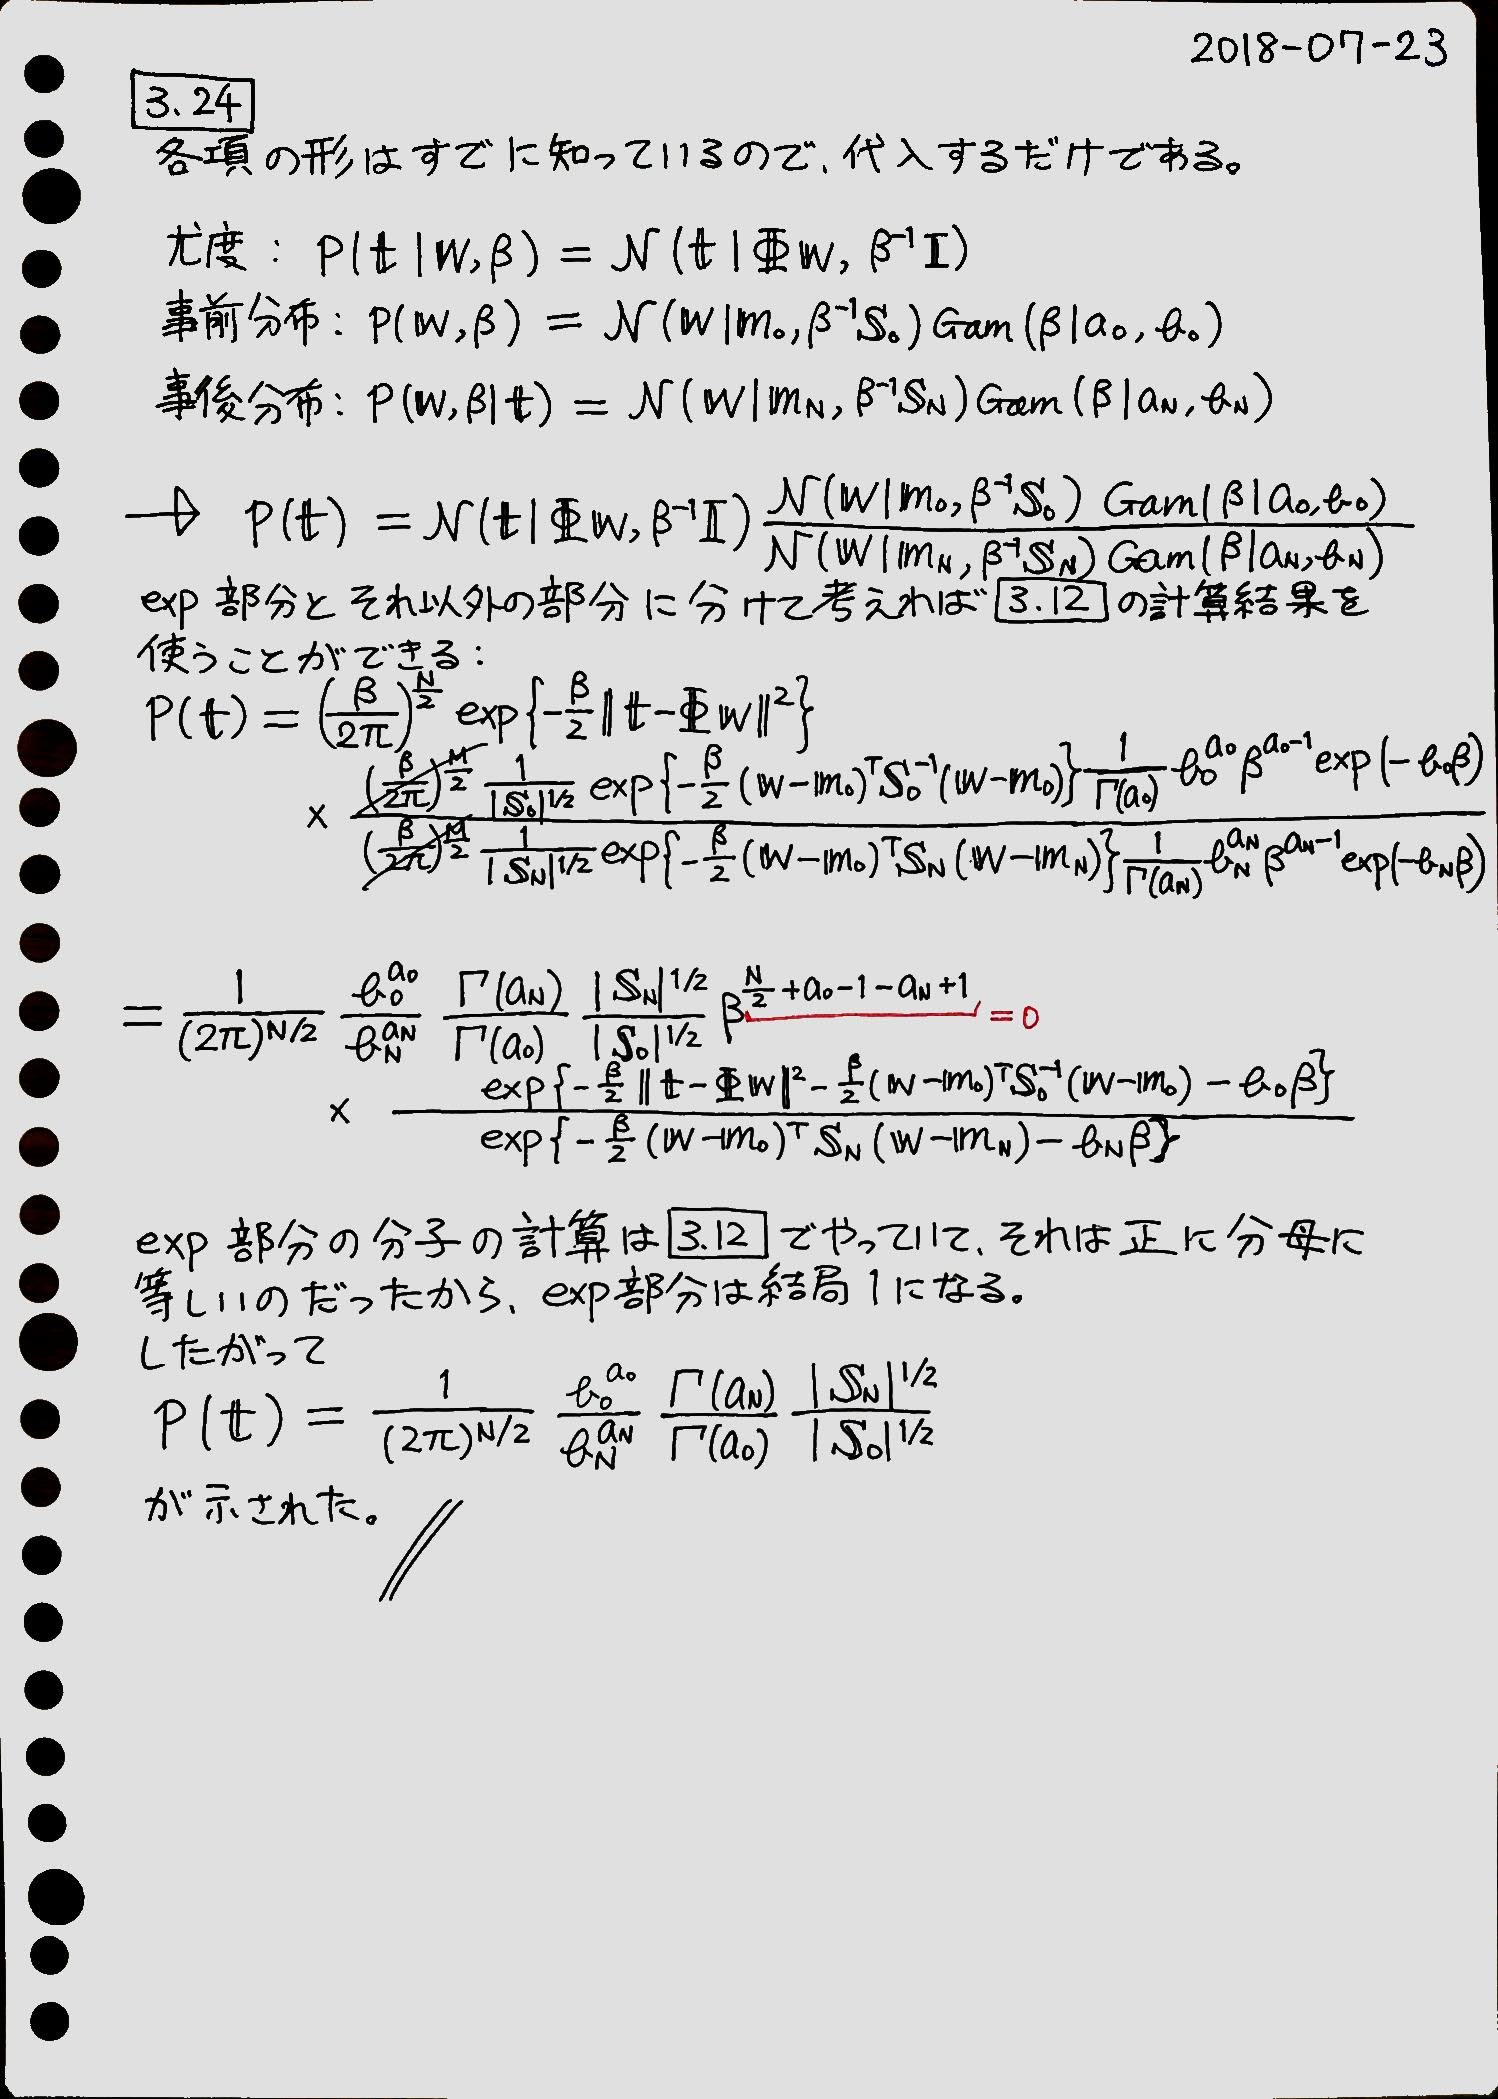 2018-07-23
3.24
各項の形はすでに知っているので、代入するだけである。
尤度: P(𝕥|𝕨,β) = 𝒩(𝕥|Φ𝕨, β⁻¹𝕀)
事前分布: P(𝕨,β) = 𝒩(𝕨|𝕞₀,β⁻¹𝕊₀)Gam(β|a₀,b₀)
事後分布: P(𝕨,β|𝕥) = 𝒩(𝕨|𝕞_N, β⁻¹𝕊_N)Gam(β|a_N, b_N)
→ P(𝕥) = 𝒩(𝕥|Φ𝕨, β⁻¹𝕀) \frac{𝒩(𝕨|𝕞₀, β⁻¹𝕊₀) Gam(β|a₀,b₀)}{𝒩(𝕨|𝕞_N, β⁻¹𝕊_N) Gam(β|a_N,b_N)}
exp 部分とそれ以外の部分に分けて考えれば 3.12 の計算結果を
使うことができる:
P(𝕥) = (\frac{β}{2π})^{\frac{N}{2}} exp{-\frac{β}{2}‖𝕥-Φ𝕨‖²}
× \frac{(\frac{β}{2π})^{\frac{M}{2}} \frac{1}{|𝕊₀|^{1/2}} exp{-\frac{β}{2}(𝕨-𝕞₀)^T 𝕊₀⁻¹(𝕨-𝕞₀)} \frac{1}{Γ(a₀)} b₀^{a₀} β^{a₀-1} exp(-b₀β)}{(\frac{β}{2π})^{\frac{M}{2}} \frac{1}{|𝕊_N|^{1/2}} exp{-\frac{β}{2}(𝕨-𝕞₀)^T 𝕊_N(𝕨-𝕞_N)} \frac{1}{Γ(a_N)} b_N^{a_N} β^{a_N-1} exp(-b_Nβ)}
= \frac{1}{(2π)^{N/2}} \frac{b₀^{a₀}}{b_N^{a_N}} \frac{Γ(a_N)}{Γ(a₀)} \frac{|𝕊_N|^{1/2}}{|𝕊₀|^{1/2}} β^{\frac{N}{2}+a₀-1-a_N+1} = 0
× \frac{exp{-\frac{β}{2}‖𝕥-Φ𝕨‖² - \frac{β}{2}(𝕨-𝕞₀)^T 𝕊₀⁻¹(𝕨-𝕞₀) - b₀β}}{exp{-\frac{β}{2}(𝕨-𝕞₀)^T 𝕊_N(𝕨-𝕞_N) - b_Nβ}}
exp 部分の分子の計算は 3.12 でやっていて、それは正に分母に
等しいのだったから、exp部分は結局1になる。
したがって
P(𝕥) = \frac{1}{(2π)^{N/2}} \frac{b₀^{a₀}}{b_N^{a_N}} \frac{Γ(a_N)}{Γ(a₀)} \frac{|𝕊_N|^{1/2}}{|𝕊₀|^{1/2}}
が示された。